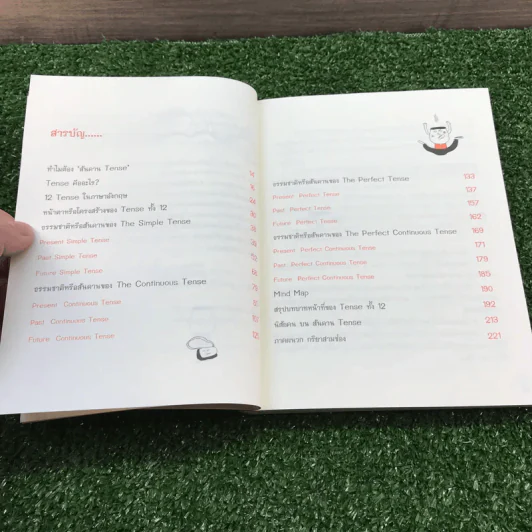 สารบัญ......
ทำไมต้อง "สันดาน Tense"
Tense คืออะไร?
12 Tense ในภาษาอังกฤษ
หน้าตาหรือโครงสร้างของ Tense ทั้ง 12
ธรรมชาติหรือสันดานของ The Simple Tense
Present Simple Tense
Past Simple Tense
Future Simple Tense
ธรรมชาติหรือสันดานของ The Continuous Tense
Present Continuous Tense
Past Continuous Tense
Future Continuous Tense
ธรรมชาติหรือสันดานของ The Perfect Tense 133
Present Perfect Tense 137
Past Perfect Tense 157
Future Perfect Tense 162
ธรรมชาติหรือสันดานของ The Perfect Continuous Tense 169
Present Perfect Continuous Tense 171
Past Perfect Continuous Tense 179
Future Perfect Continuous Tense 185
Mind Map 190
สรุปบทบาทหน้าที่ของ Tense ทั้ง 12 192
นิสัยคน บน สันดาน Tense 213
ภาคผนวก กริยาสามช่อง 221